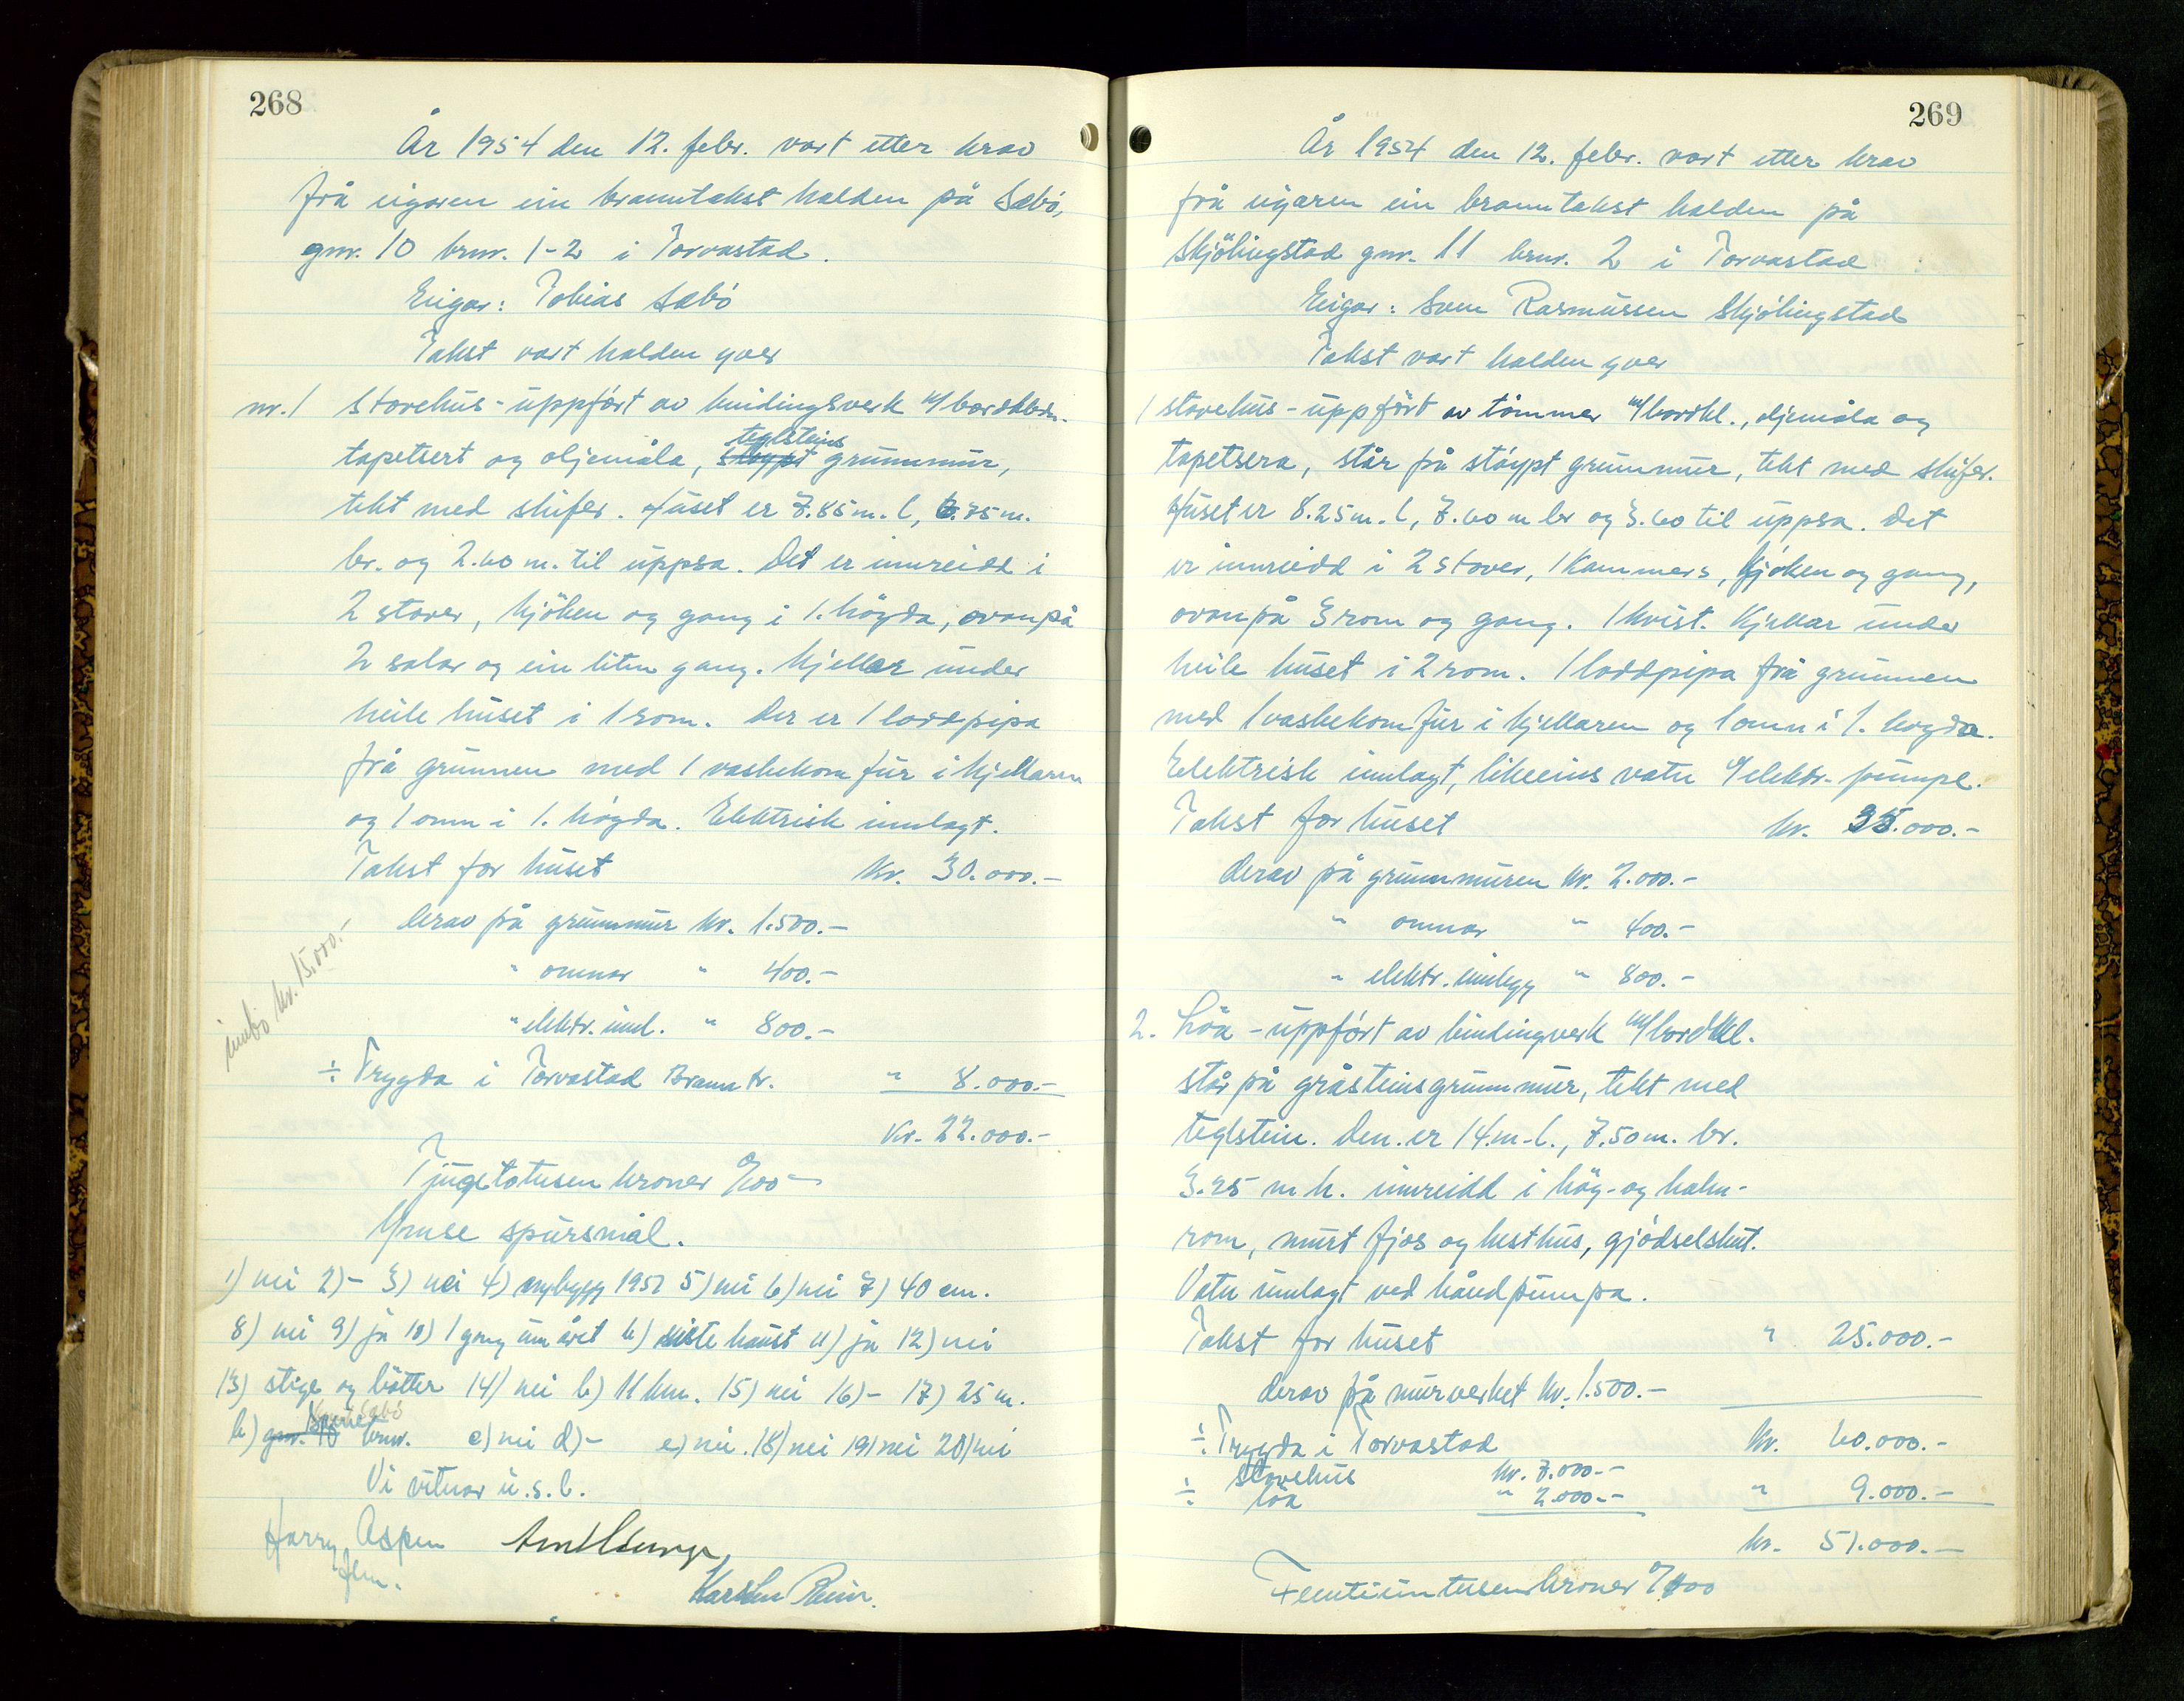 268
År 1954 den 12. febr. vart etter krav
frå eigaren ein branntakst halden på Sæbö,
gnr. 10 brnr. 1-2 i Torvastad.
Eigar: Tobias Sæbö
Takst vart halden yver
nr. 1 stovehus - uppfört av bindingsverk m/bordkledn.
teglsteins
tapetsert og oljemåla, støypt grunnmur,
tekt med skifer. Huset er 7.85 m. l, 6.75 m.
br. og 2.60 m. til uppsa. Det er innreidd i
2 stover, kjöken og gang i 1. högda, ovanpå
2 salar og ein liten gang. Kjellar under
heile huset i 1 rom. Der er 1 loddpipa
frå grunnen med 1 vaskekomfur i kjellaren
og 1 omn i 1. högda. Elektrisk innlagt.
Takst for huset kr. 30.000.-
derav på grunnmur kr. 1.500.-
" omnar " 400.-
" elektr. innl. " 800.-
innbo kr. 15.000.-
÷ Trygda i Torvastad Brann tr. " 8.000.-
Kr. 22.000.-
Tjugetotusen kroner 0/100
Ymse spursmål.
1) nei 2) - 3) nei 4) nybygg 1952 5) nei 6) nei 7) 40 cm.
8) nei 9) ja 10) 1 gong um året b) siste haust 11) ja 12) nei
13) stige og bötter 14) nei b) 11 km. 15) nei 16) - 17) 25 m.
b) gnr. 10 brnr. c) nei d) - e) nei. 18) nei 19) nei 20) nei
Vi vitnar u.s.l.
Harry Aspen
lm.
Karsten
269
År 1954 den 12. febr. vart etter krav
frå eigaren ein branntakst halden på
Skjölingstad gnr. 11 brnr. 2 i Torvastad
Eigar: Sven Rasmussen Skjölingstad
Takst vart halden yver
1 stovehus - uppfört av tömmer m/bordkl., oljemåla og
tapetsera, står på stöypt grunnmur, tekt med skifer.
Huset er 8.25 m. l, 7.60 m br og 3.60 til uppsa. Det
er innreidd i 2 stover, 1 kammers, kjöken og gang,
ovanpå 3 rom og gang. 1 kvist. Kjellar under
heile huset i 2 rom. 1 loddpipa frå grunnen
med 1 vaskekomfur i kjellaren og 1 omn i 1. högda.
Elektrisk innlagt, likeeins vatn m/elektr. pumpe.
Takst for huset kr. 35.000.-
derav på grunnmuren kr. 2.000.-
" omnar " 400.-
" elektr. innlegg " 800.-
2. Löa - uppfört av bindingverk m/bordkl.
står på gråsteinsgrunnmur, tekt med
teglstein. Den er 14 m. l., 7.50 m. br.
3.25 m h. innreidd i höy- og halm-
rom, murt fjos og hesthus, gjödselshut.
Vatn innlagt ved håndpumpa.
Takst for huset " 25.000.-
derav på murverket kr. 1.500.-
÷ Trygda i Torvastad kr. 60.000.-
stovehus kr. 7.000.-
÷ löa " 2.000.- " 9.000.-
kr. 51.000.-
Femtiein tusen kroner 0/100